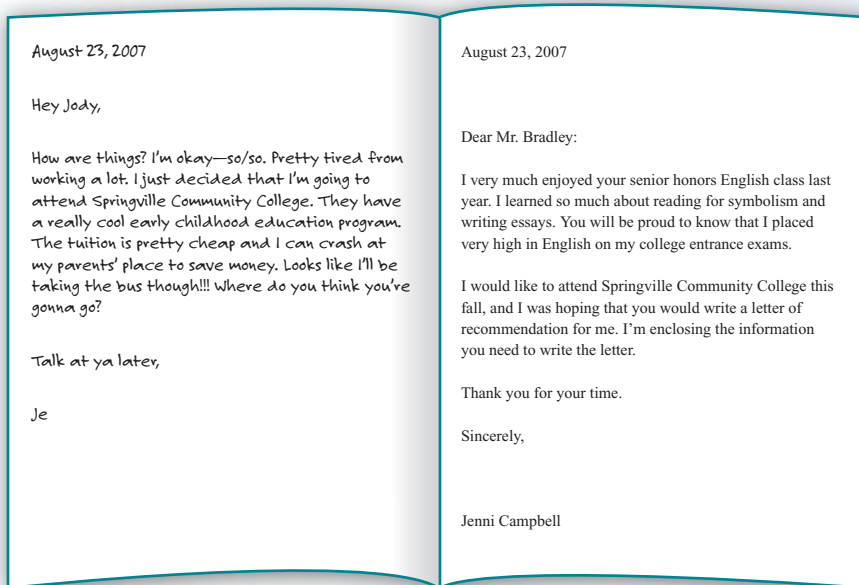 August 23, 2007
Hey Jody,
How are things? I'm okay—so/so. Pretty tired from
working a lot. I just decided that I'm going to
attend Springville Community College. They have
a really cool early childhood education program.
The tuition is pretty cheap and I can crash at
my parents' place to save money. Looks like I'll be
taking the bus though!!! Where do you think you're
gonna go?
Talk at ya later,
Je
August 23, 2007
Dear Mr. Bradley:
I very much enjoyed your senior honors English class last
year. I learned so much about reading for symbolism and
writing essays. You will be proud to know that I placed
very high in English on my college entrance exams.
I would like to attend Springville Community College this
fall, and I was hoping that you would write a letter of
recommendation for me. I'm enclosing the information
you need to write the letter.
Thank you for your time.
Sincerely,
Jenni Campbell